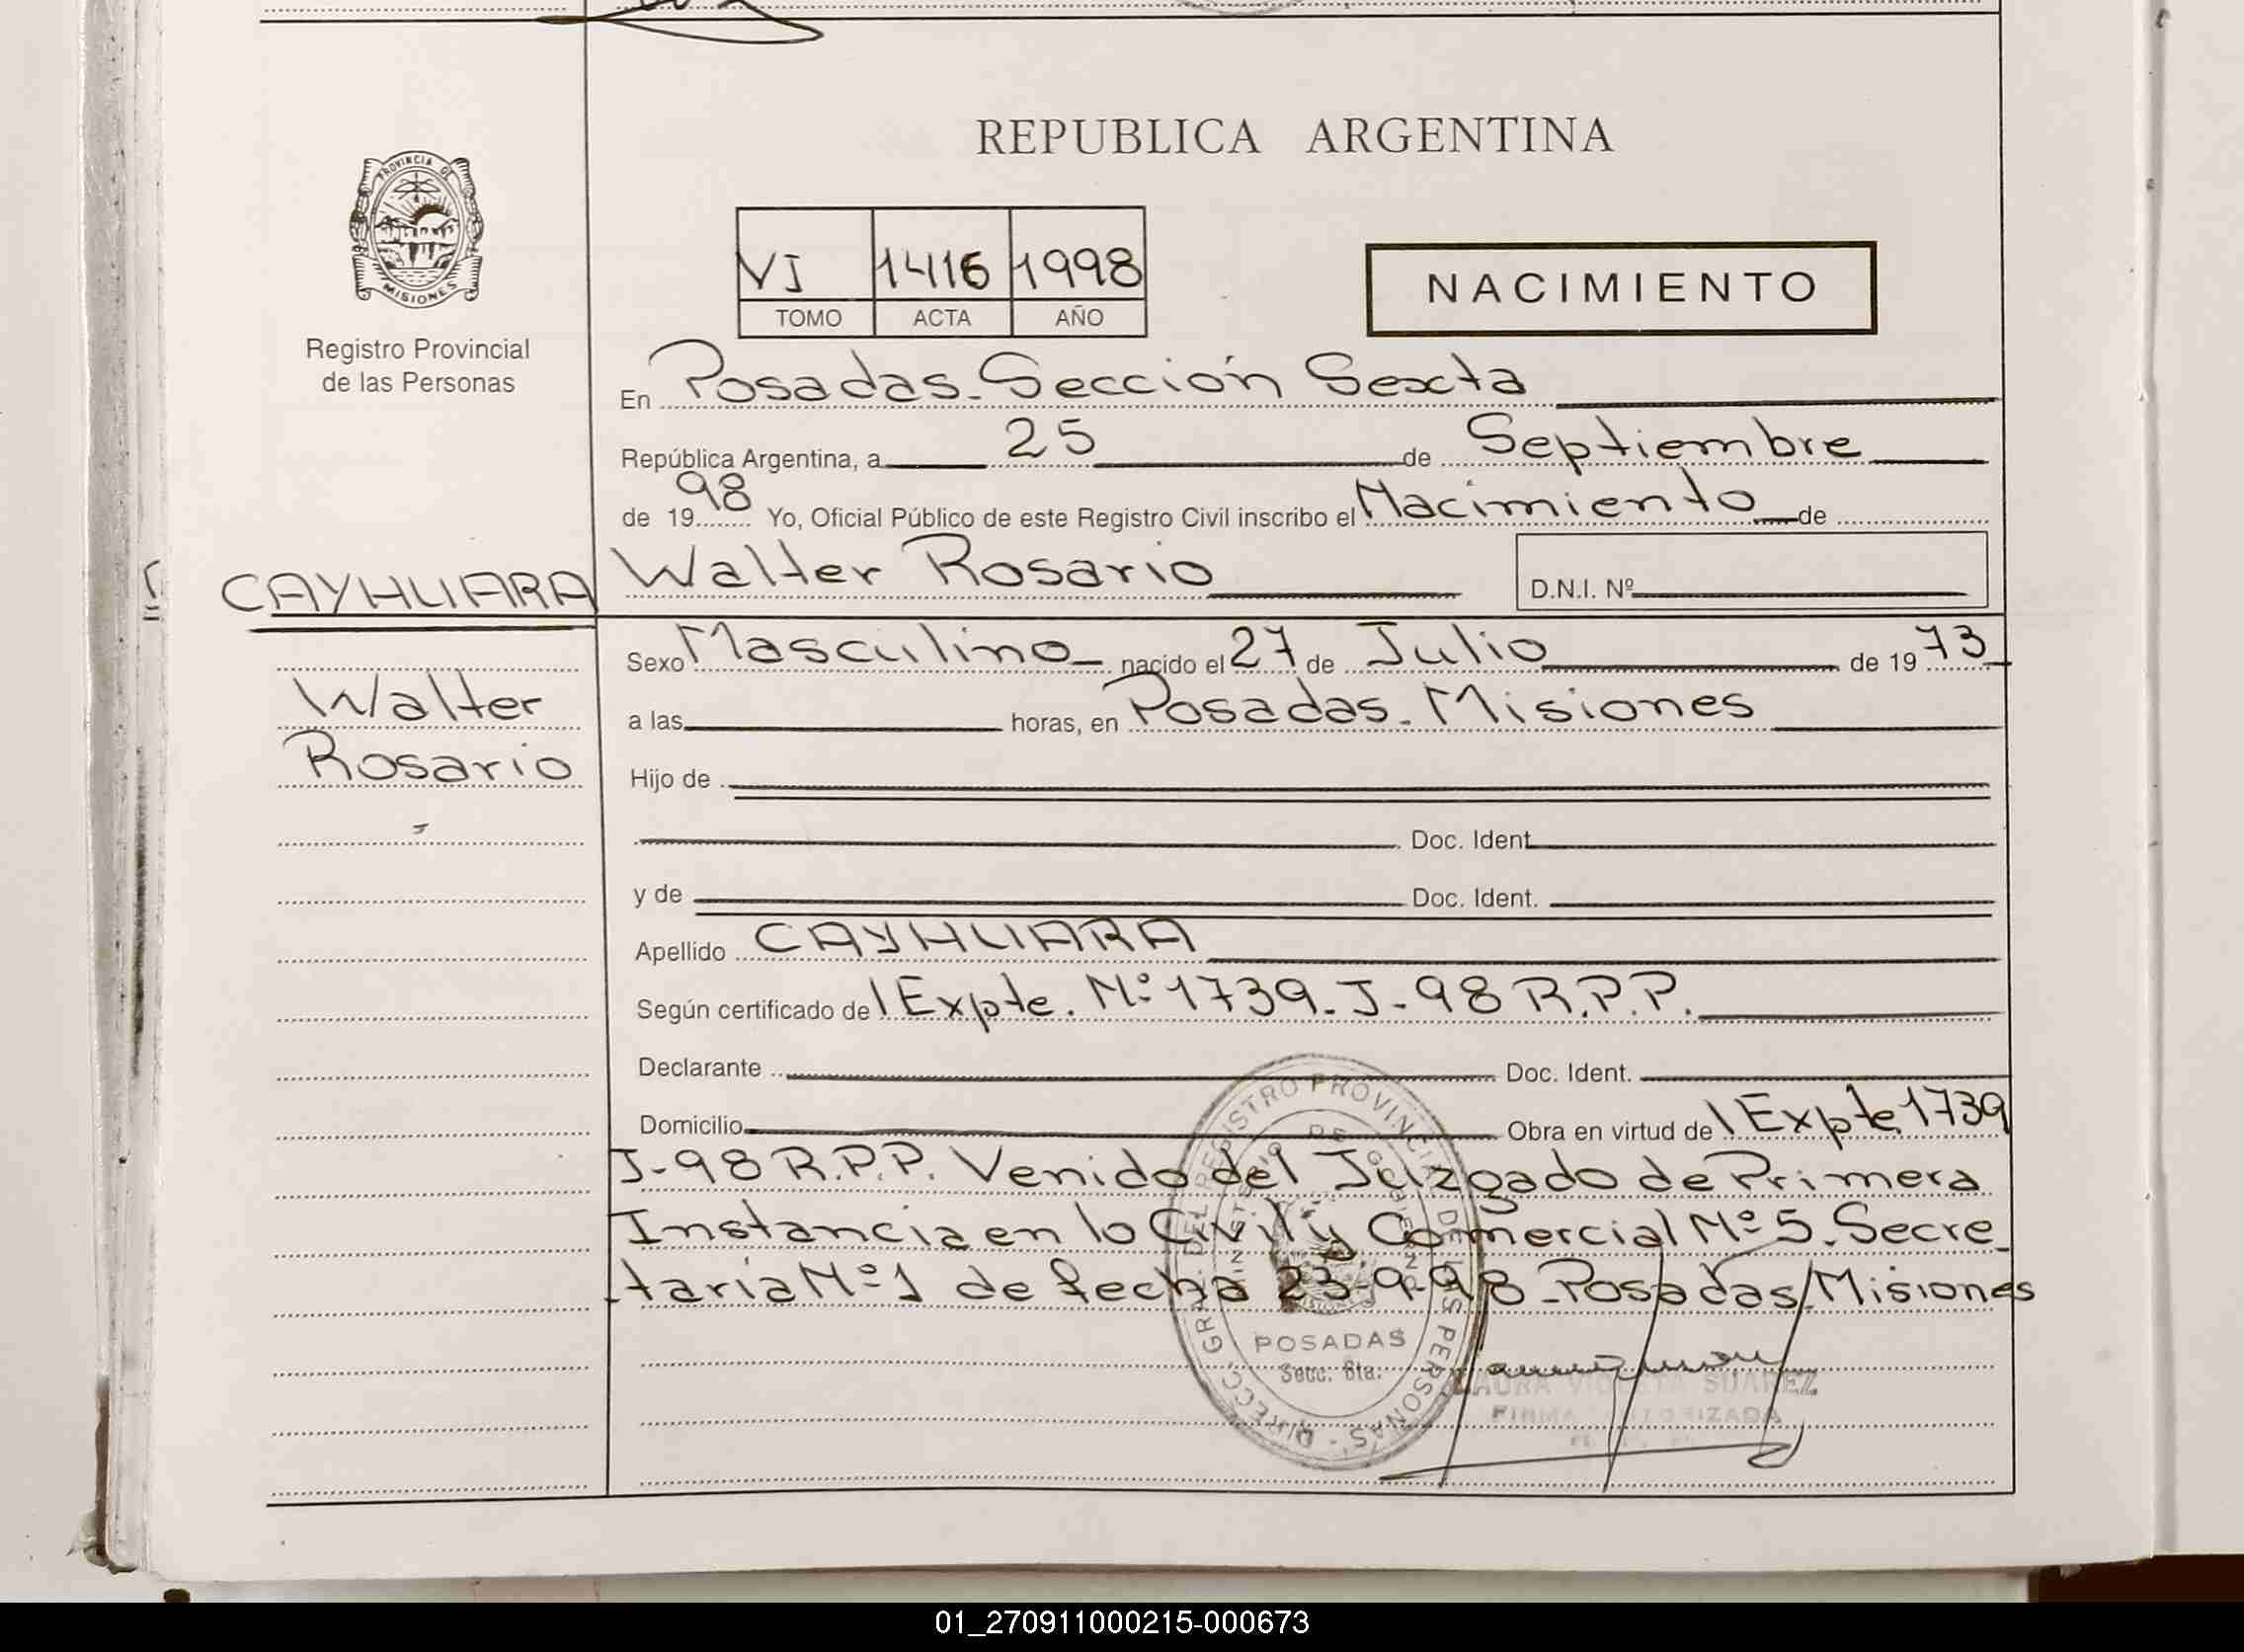 REPUBLICA ARGENTINA
PROVINCIA DE
MISIONES
Registro Provincial
de las Personas
VI 1416 1998
TOMO ACTA AÑO
NACIMIENTO
En Posadas. Sección Sexta
República Argentina, a 25 de Septiembre
de 1998 Yo, Oficial Público de este Registro Civil inscribo el Nacimiento de
Walter Rosario D.N.I. Nº
CAYHUARA
Walter
Rosario
Sexo Masculino nacido el 27 de Julio de 1973
a las horas, en Posadas. Misiones
Hijo de
Doc. Ident.
y de Doc. Ident.
Apellido CAYHUARA
Según certificado de Expte. Nº 1739. J-98 R.P.P.
Declarante Doc. Ident.
Domicilio Obra en virtud de Expte 1739
J-98 R.P.P. Venido del Juzgado de Primera
Instancia en lo Civil y Comercial Nº 5. Secre
taría Nº 1 de fecha 23-9-98 Posadas Misiones
DIRECC. GRAL. DEL REGISTRO PROVINCIAL DE LAS PERSONAS
MINISTERIO DE GOBIERNO
POSADAS
Secc. 6ta.
LAURA VIOLETA SUAREZ
FIRMA AUTORIZADA
01_270911000215-000673